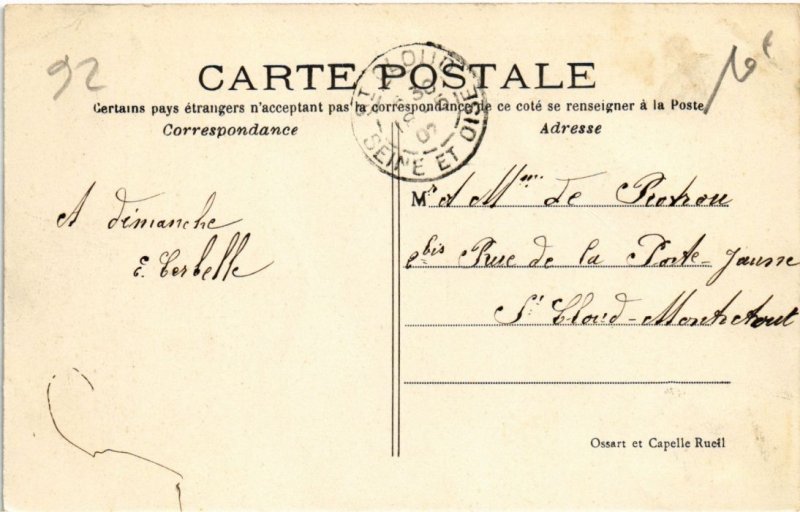 92
CARTE POSTALE
Certains pays étrangers n'acceptant pas la correspondance de ce coté se renseigner à la Poste
Correspondance
Adresse
ST CLOUD
SEINE ET OISE
A dimanche
E. Terbelle
Mr & Mme de Rotrou
bis Rue de la Porte-Jaune
St Cloud-Montretout
Ossart et Capelle Rueil